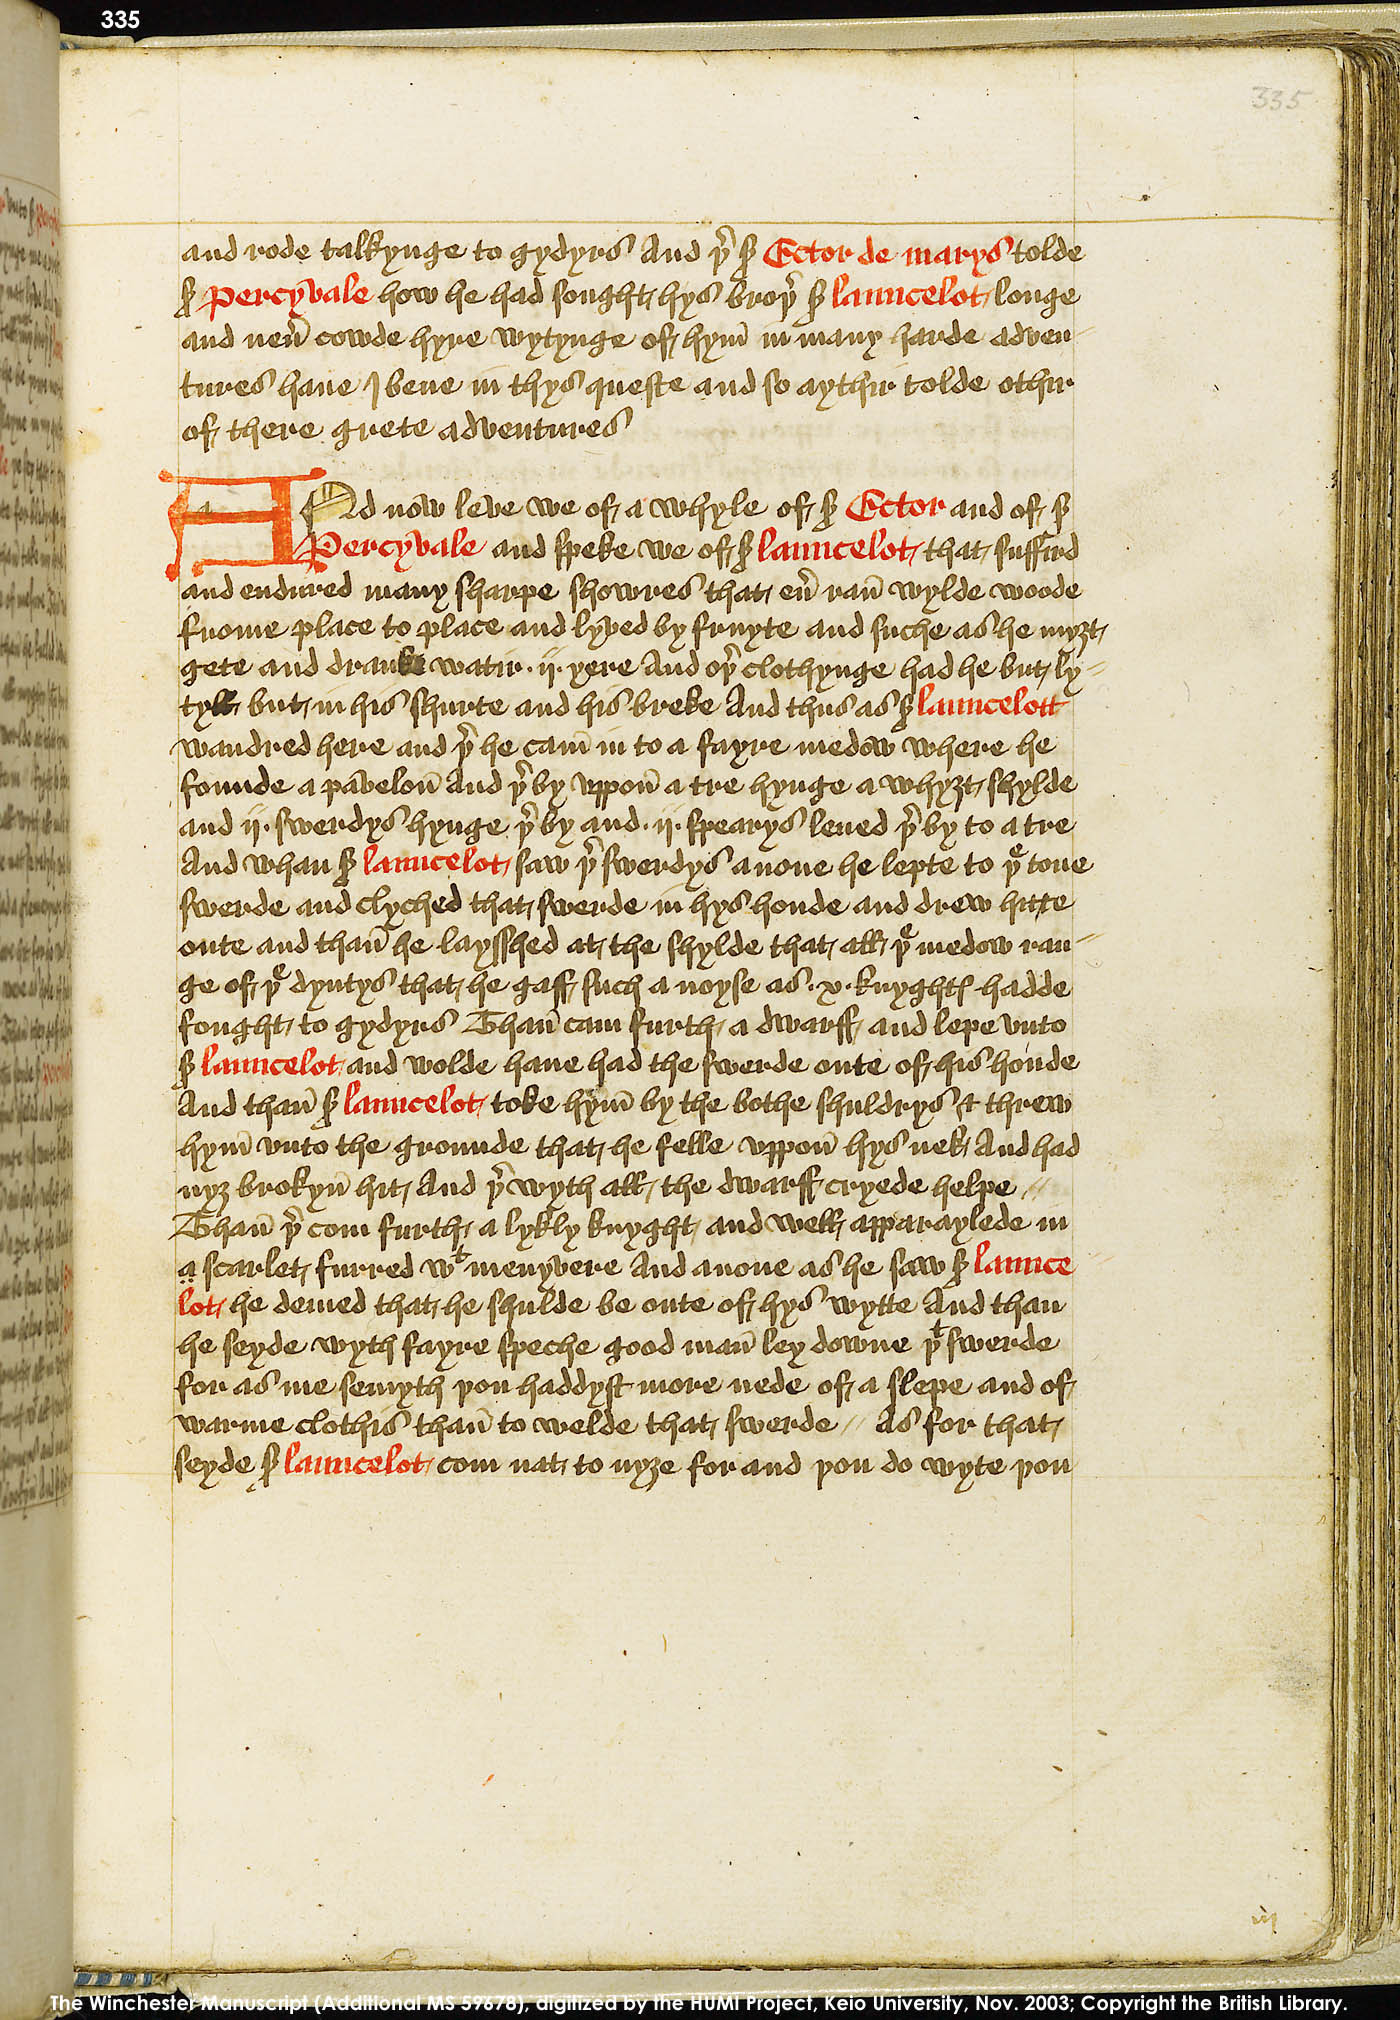 335
335
and rode talkynge to gydyrs And þr̃ ẜ Ector de marys tolde
ẜ Percyvale how he had sought hys broþr̃ ẜ launcelot longe
and neu̾ cowde hyre wytynge of hym̄ in many harde adven-
tures haue I bene in thys queste and so aythir tolde othir
of there grete adventures
ANd now leve we of a whyle of ẜ Ector and of ẜ
Percyvale and speke we of ẜ launcelot that suffird
and endured many sharpe showres that eu̾ ran̄ wylde woode
frome place to place and lyved by fruyte and suche as he myȝt
gete and dranke watir .ij. yere And oþr̃ clothynge had he but ly-
tyll but in his shurte and his breke And thus as ẜ launcelott
wandred here and þr̃ he cam̄ in to a fayre medow where he
founde a pavelon̄ And þr̃ by vppon̄ a tre hynge a whyȝt shylde
and ij. swerdys hynge þr̃ by and .ij. spearys lened þr̃ by to a tre
And whan ẜ launcelot saw þr̃ swerdys anone he lepte to þᵉ tone
swerde and clyched that swerde in hys honde and drew hitte
oute and than̄ he laysshed at the shylde that all þᵉ medow ran-
ge of þᵉ dyntys that he gaff such a noyse as .x. knyghtꝭ hadde
fought to gydyrs Than̄ cam furth a dwarff and lepe vnto
ẜ launcelot and wolde haue had the swerde oute of his honde
And than̄ ẜ launcelot toke hym̄ by the bothe shuldrys & threw
hym̄ vnto the grounde that he felle vppon̄ hys nek And had
nyȝ brokyn̄ hit And þr̃ wyth all the dwarff cryede helpe //
Than̄ þr̃ com furth a lykly knyght and well apparaylede in
a scarlet furred wᵗ menyvere And anone as he saw ẜ launce
lot he demed that he shulde be oute of hys wytte And than
he seyde wyth fayre speche good man̄ ley downe þᵗ swerde
for as me semyth þou haddyst more nede of a slepe and of
warme clothis than̄ to welde that swerde // As for that
seyde ẜ launcelot com nat to nyȝe for and þou do wyte þou
The Winchester Manuscript (Additional MS 59678), digitized by the HUMI Project, Keio University, Nov. 2003; Copyright the British Library.